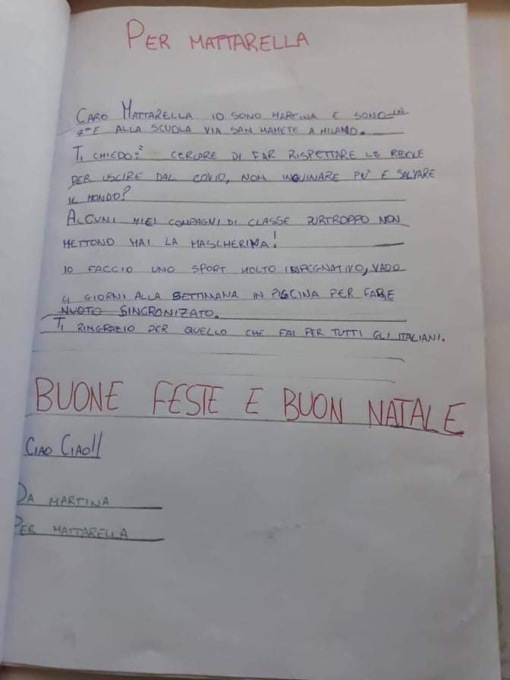 PER MATTARELLA
CARO MATTARELLA IO SONO MARTINA E SONO IN
2°E ALLA SCUOLA VIA SAN MAMETE A MILANO.
TI CHIEDO: CERCARE DI FAR RISPETTARE LE REGOLE
PER USCIRE DAL COVID, NON INQUINARE PIÙ E SALVARE
IL MONDO?
ALCUNI MIEI COMPAGNI DI CLASSE PURTROPPO NON
METTONO MAI LA MASCHERINA!
IO FACCIO UNO SPORT MOLTO IMPEGNATIVO, VADO
4 GIORNI ALLA SETTIMANA IN PISCINA PER FARE
NUOTO SINCRONIZATO.
TI RINGRAZIO PER QUELLO CHE FAI PER TUTTI GLI ITALIANI.
BUONE FESTE E BUON NATALE
CIAO CIAO!!
DA MARTINA
PER MATTARELLA